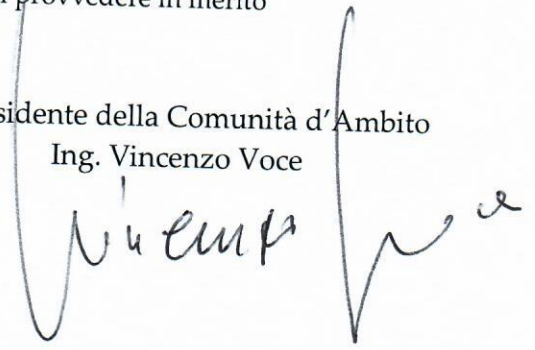 provvedere in merito
sidente della Comunità d'Ambito
Ing. Vincenzo Voce
Vincenzo Voce